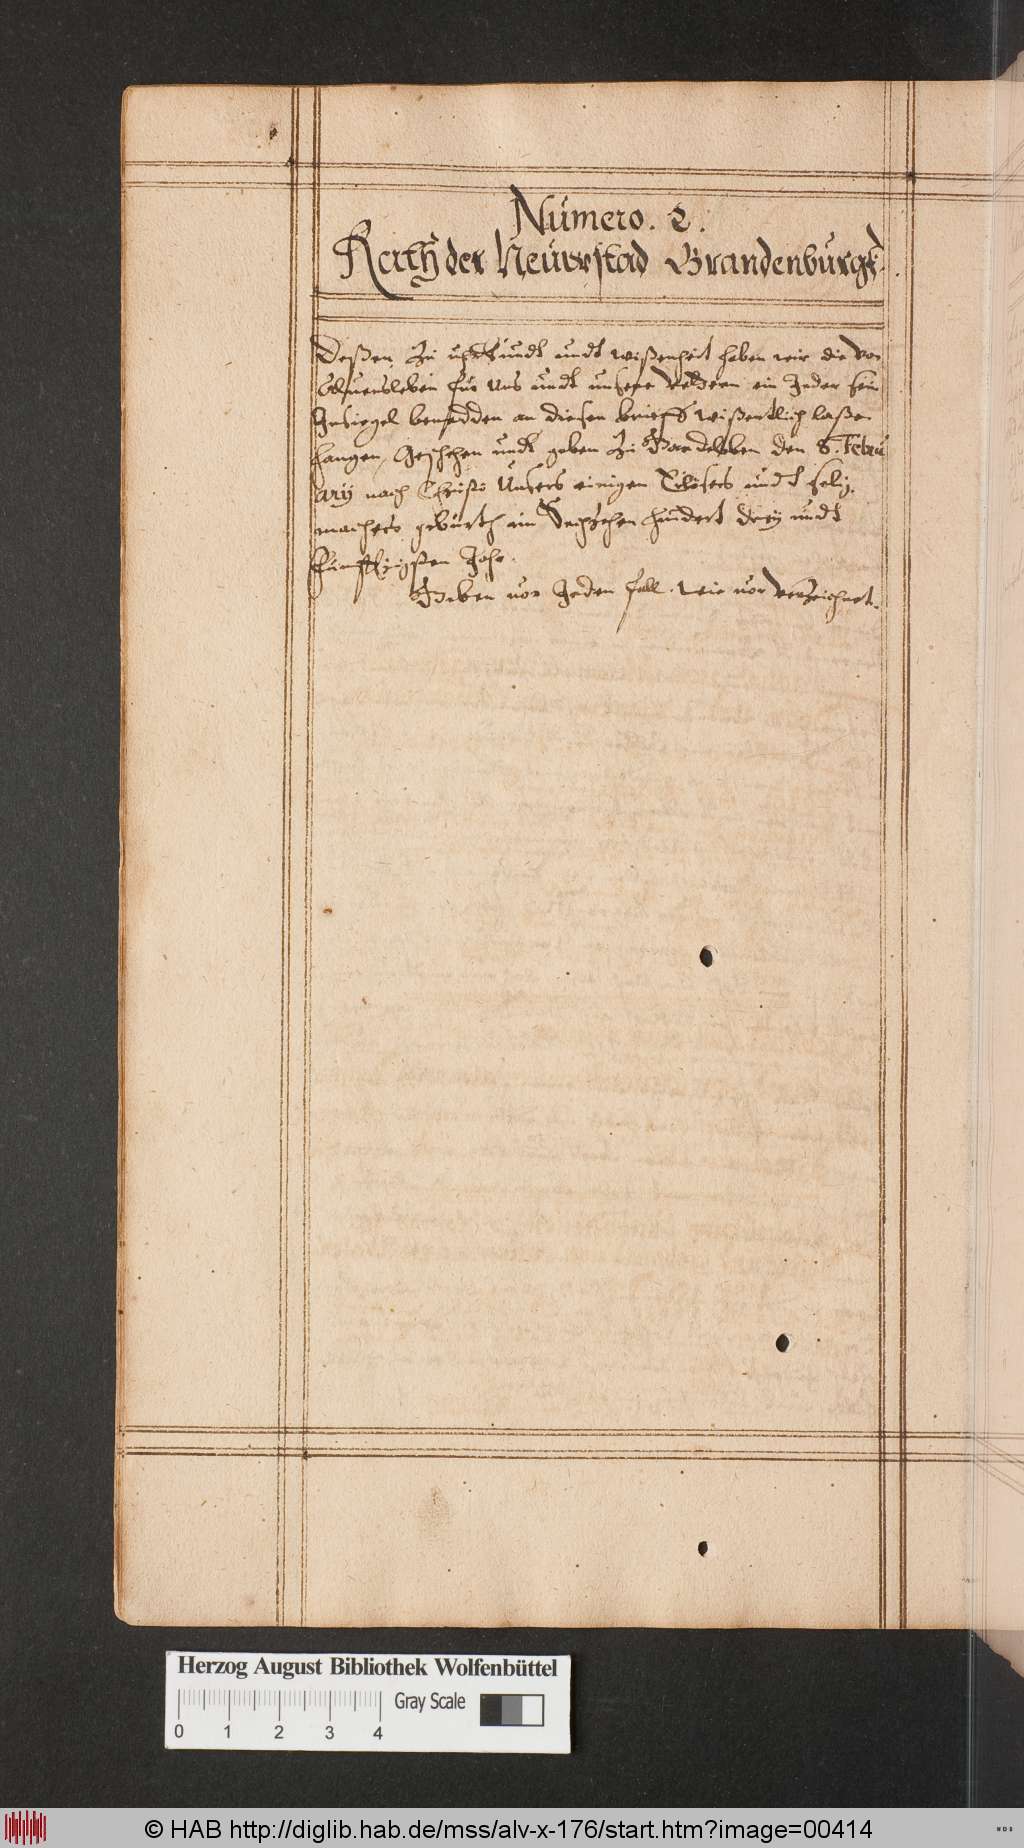 Numero. 2.
Rath der Neuwstad Brandenburgk.
Deßen zu uhrkundt undt wißenheit haben wir die von
Alvensleben für Uns undt unsere Vettern ein Jeder sein
Insiegel benedden an diesen brieff wißentlich laßen
hangen, Geschehen undt geben zu den 8. Febru
ary nach Christi Unsers einigen Erlösers undt Selig
machers geburth im Sechzehen hundert drey undt
funfftzigsten Jahr.
Geben vor Jeden fall. wie vor verzeichnet.
Herzog August Bibliothek Wolfenbüttel
Gray Scale
0 1 2 3 4
© HAB http://diglib.hab.de/mss/alv-x-176/start.htm?image=00414